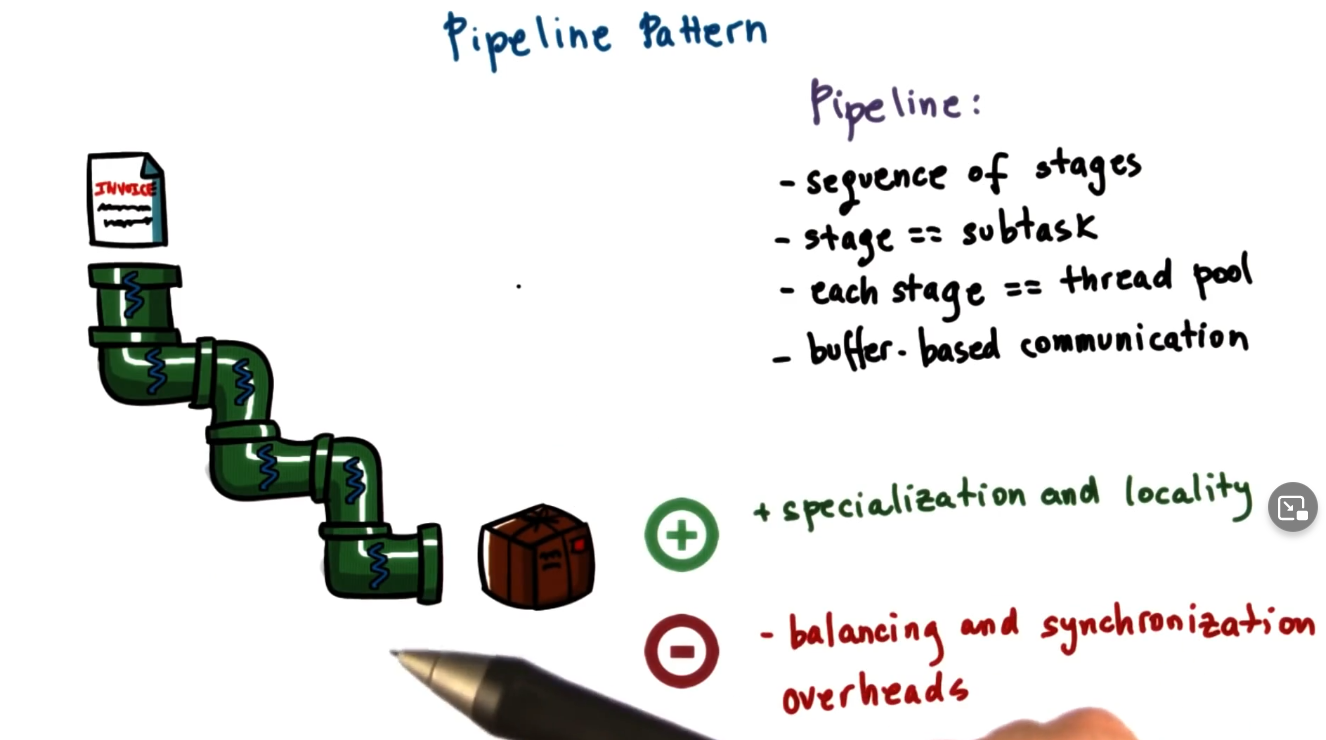 Pipeline Pattern
Pipeline:
- sequence of stages
- stage == subtask
- each stage == thread pool
- buffer-based communication
INVOICE
+ specialization and locality
- balancing and synchronization
overheads